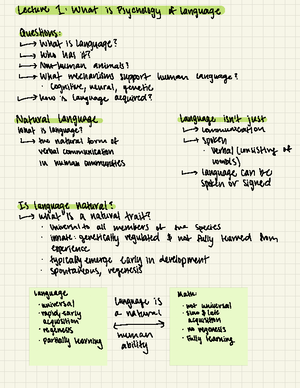 Lecture 1: What is Psychology of Language
Questions:
→ What is language?
→ Who has it?
→ Non-human animals?
→ What mechanisms support human language?
· cognitive, neural, genetic
→ How is language acquired?
Natural Language
What is language?
→ the natural form of
verbal communication
in human communities
Language isn't just
→ communication
→ spoken
· verbal (consisting of
words)
→ language can be
spoken or signed
Is language Natural?
→ what is a natural trait?
· universal to all members of the species
· innate: genetically regulated & not fully learned from
experience
· typically emerge early in development
· spontaneous, regenesis
Language
· universal
· rapid & early
acquisition
· regenesis
· partially learning
Language is
a natural
human
ability
Math:
· not universal
· slow & late
acquisition
· no regenesis
· fully learning